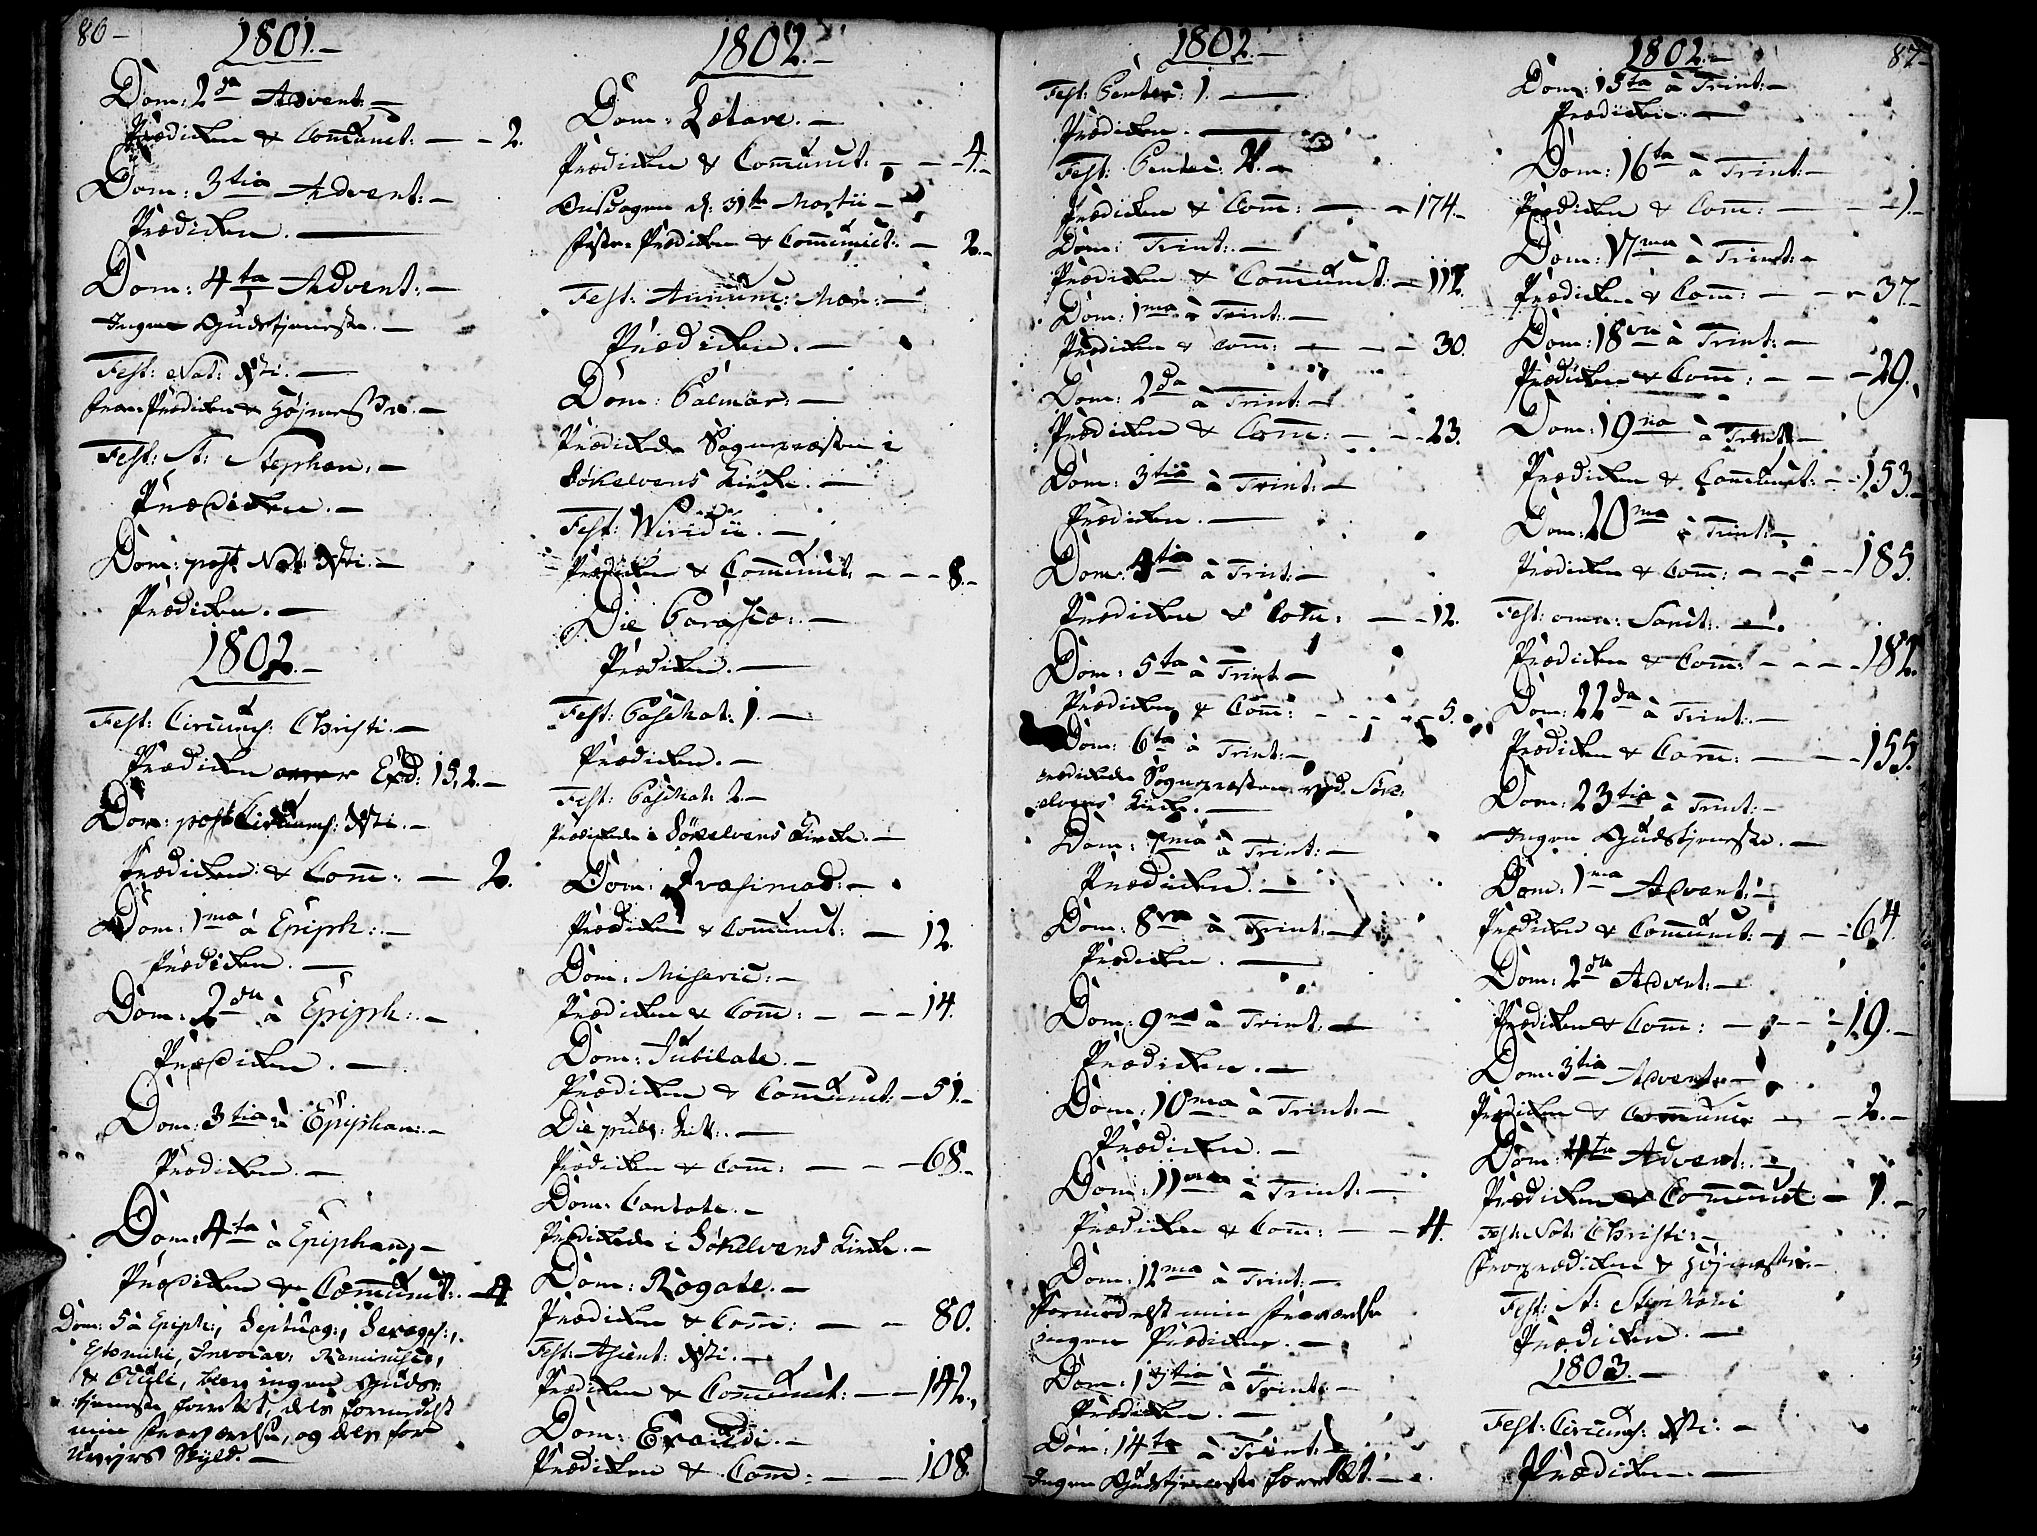 86 -
1801. -
Dom: 2da Advent: -
Prædiken & Comunict: - - 2.
Dom: 3tia Advent: -
Prædiken. -
Dom: 4ta Advent: -
Ingen Gudstjeneste. -
Fest: Nat: Xsti. -
Froe Prædiken & Højmesse. -
Fest: St: Stephan: -
Prædiken. -
Dom: post Nat: Xsti. -
Prædiken. -
1802. -
Fest: Circumcs: Christi. -
Prædiken over Exod: 15,2. -
Dom: post Circumcs: Xsti. -
Prædiken & Comm: - 2.
Dom: 1ma à Epiph: -
Prædiken. -
Dom: 2da à Epiph: -
Prædiken. -
Dom: 3tia à Epiphan: -
Prædiken. -
Dom: 4ta à Epiphan: -
Prædiken & Comunict: - 4.
Dom: 5 à Epiph:, Septuag:, Sexages:,
Estomihi, Invocav: Reminisc:,
& Oculi, blev ingen Guds-
tjeneste forrettet, dels formedelst
min Fraværelse, og dels for
Uvejrs Skyld. -
1802. -
Dom: Lætare. -
Prædiken & Comunict: - - 4. -
Onsdagen d: 31te Martii -
Faste-Prædiken & Comunict: - 2. -
Fest: Annunc: Mar: -
Prædiken. -
Dom: Palmar: -
Prædikede Sognepræsten i
Sökelvens Kirke. -
Fest: Viridii. -
Prædiken & Comunict: - - - 8. -
Die Parasc: -
Prædiken. -
Fest: Paschat: 1. -
Prædiken. -
Fest: Paschat: 2 -
Prædikede i Sökelvens Kirke. -
Dom: Qvasimod: -
Prædiken & Comunict: - 12.
Dom: Miseric: -
Prædiken & Comm: - - - 14.
Dom: Jubilate. -
Prædiken & Comunict: - 51. -
Die publ:
Prædiken & Comm: - - - 68. -
Dom: Cantate. -
Prædikede i Sökelvens Kirke. -
Dom: Rogate. -
Prædiken & Comm: - - 80.
Fest: Ascent: Xsti. -
Prædiken & Comunict: - - 142.
Dom: Exaudi. -
Prædiken & Comm: - - 108.
1802. -
Fest: Pentec: 1. -
Prædiken. -
Fest: Pentec: 2. -
Prædiken & Comm: - - 174. -
Dom: Trint: -
Prædiken & Comunict: - 112.
Dom: 1ma à Trint: -
Prædiken & Comm: - - - 30.
Dom: 2da à Trint: -
Prædiken & Comm: - - - 23.
Dom: 3tia à Trint: -
Prædiken. -
Dom: 4ta à Trint: -
Prædiken & Com: - - 12.
Dom: 5ta à Trint -
Prædiken & Comm: - - - - 5.
Dom: 6ta à Trint: -
Prædikede Sognepræsten ved Sök-
elvens Kirke. -
Dom: 7ma à Trint: -
Prædiken. -
Dom: 8va à Trint: -
Prædiken. -
Dom: 9na à Trint: -
Prædiken. -
Dom: 10ma à Trint: -
Prædiken. -
Dom: 11ma à Trint: -
Prædiken & Com: - - 4.
Dom: 12ma à Trint: -
Formedelst min Fraværelse
ingen Prædiken. -
Dom: 13tia à Trint: -
Prædiken. -
Dom: 14ta à Trint: -
Ingen Gudstjeneste forrettet. -
87 -
1802. -
Dom: 15ta à Trint: -
Prædiken. -
Dom: 16ta à Trint: -
Prædiken & Com: - - - 1. -
Dom: 17ma à Trint: -
Prædiken & Com: - - - 37. -
Dom: 18va à Trint: -
Prædiken & Comm: - - - 29.
Dom: 19na à Trint: -
Prædiken & Comunict: - - 153. -
Dom: 20ma à Trint: -
Prædiken & Comm: - - - - 185.
Fest: omn: Sanct: -
Prædiken & Comm: - - - - 182.
Dom: 22da à Trint: -
Prædiken & Comm: - - - 155.
Dom: 23tia à Trint: -
Ingen Gudstjeneste. -
Dom: 1ma Advent: -
Prædiken & Comunict: - - - 64.
Dom: 2da Advent: -
Prædiken & Comm: - - - - 19. -
Dom: 3tia Advent: -
Prædiken & Comunic: - - 2. -
Dom: 4ta Advent: -
Prædiken & Comunict: - 1. -
Fest: Nat: Christi: -
Froprædiken & Højmesse. -
Fest: St: Stephani
Prædiken. -
1803. -
Fest: Circumcs: Xsti: -
Prædiken. -